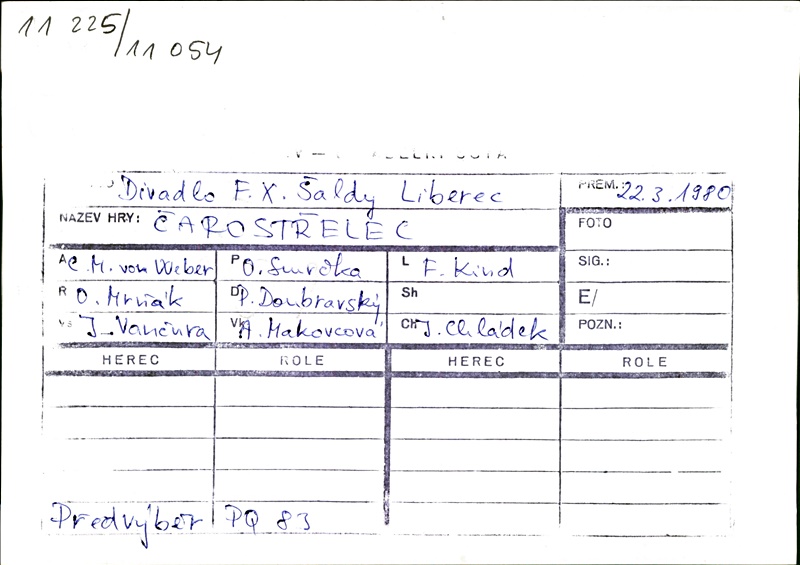 11 225/
11 054
Divadlo F. X. Šaldy Liberec PREM.: 22.3.1980
NÁZEV HRY: ČAROSTŘELEC FOTO
A C. M. von Weber P O. Smrčka L F. Kind SIG.:
R O. Mrňák D P. Doubravský Sh E/
Vs J. Vančura Vk A. Makovcová Ch J. Chládek POZN.:
HEREC ROLE HEREC ROLE
Předvýběr PQ 83